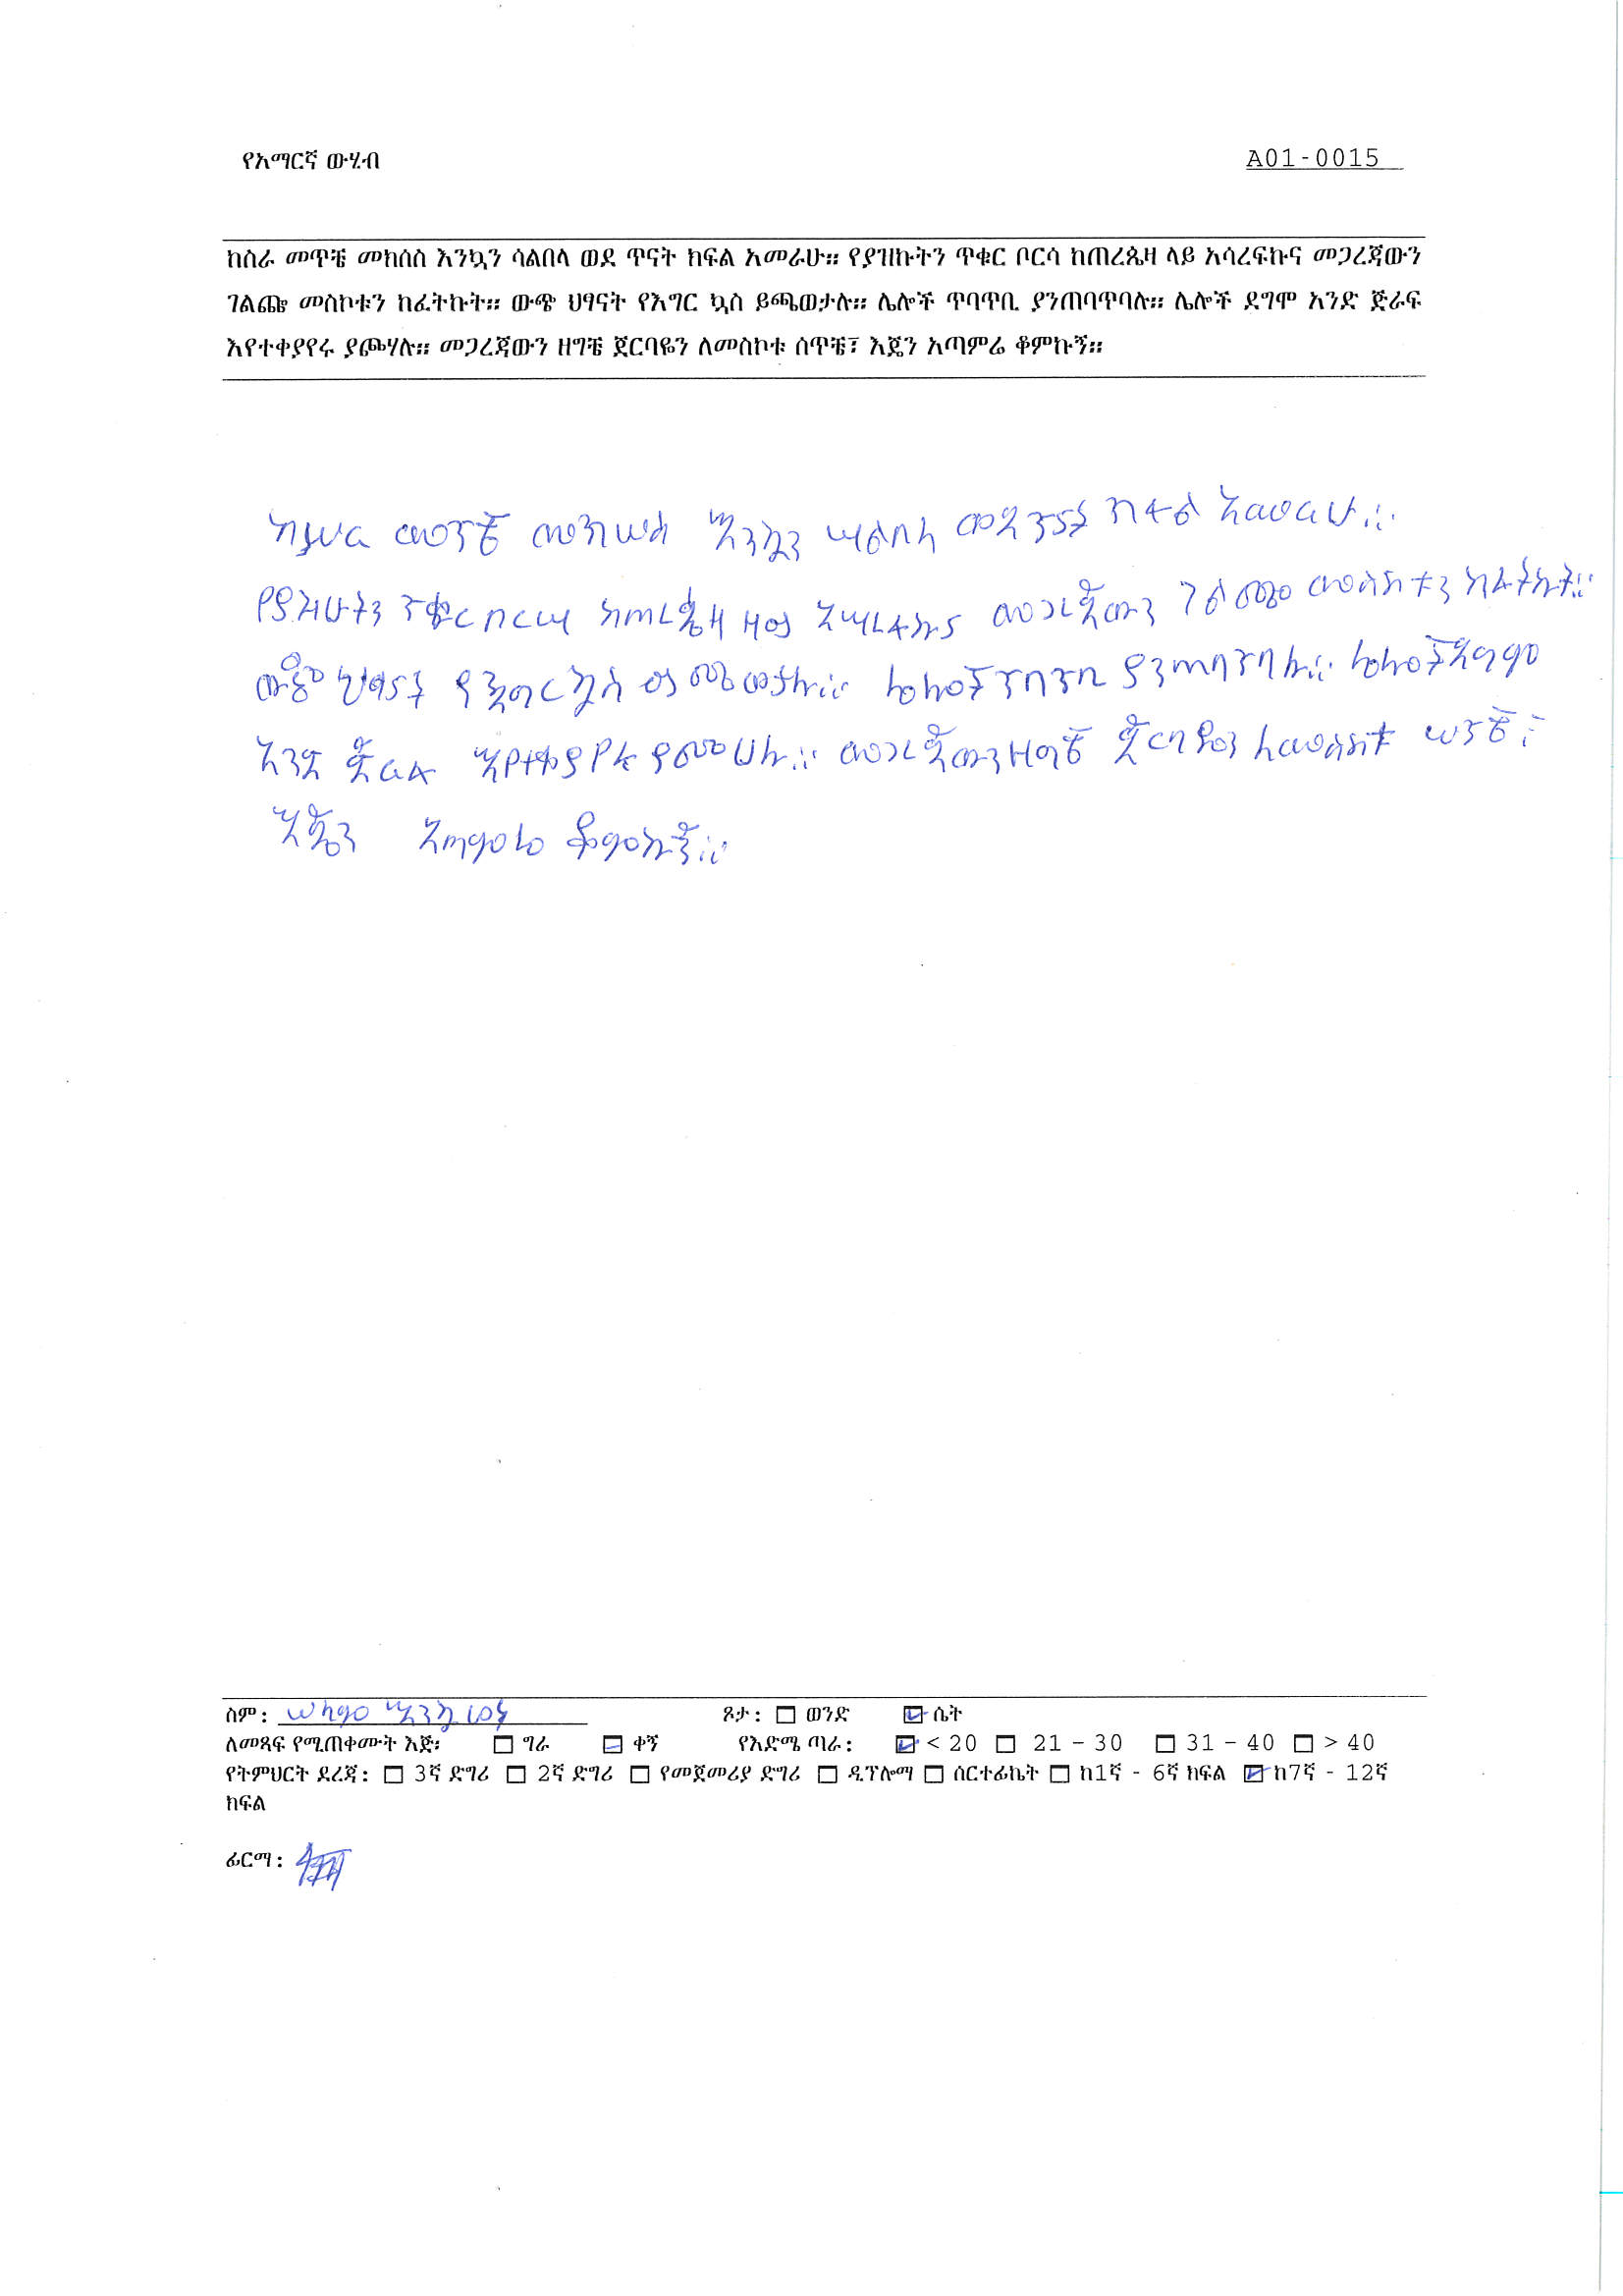 የአማርኛ ውሂብ A01-0015
ከስራ መጥቼ መክሰስ እንኳን ሳልበላ ወደ ጥናት ክፍል አመራሁ። የያዝኩትን ጥቁር ቦርሳ ከጠረጴዛ ላይ አሳረፍኩና መጋረጃውን
ገልጬ መስኮቱን ከፈትኩት። ውጭ ህፃናት የእግር ኳስ ይጫወታሉ። ሌሎች ጥባጥቢ ያንጠባጥባሉ። ሌሎች ደግሞ አንድ ጅራፍ
እየተቀያየሩ ያጮሃሉ። መጋረጃውን ዘግቼ ጀርባዬን ለመስኮቱ ሰጥቼ፣ እጄን አጣምሬ ቆምኩኝ።
ከሥራ መጥቼ መክሠስ እንኳን ሣልበላ ወደ ጥናት ክፍል አመራሁ።
የያዝሁትን ጥቁር ቦርሣ ከጠረጴዛ ላይ አሣረፍኩና መጋረጃውን ገልጬ መስኮቱን ከፈትኩት።
ውጭ ህፃናት የእግር ኳስ ይጫወታሉ። ሌሎች ጥባጥቢ ያንጠባጥባሉ። ሌሎች ደግሞ
አንድ ጅራፍ እየተቀያየሩ ያጮሀሉ። መጋረጃውን ዘግቼ ጀርባዬን ለመስኮቱ ሠጥቼ፣
እጄን አጣምሬ ቆምኩኝ።
ስም: ፆታ: ወንድ ሴት
ለመጻፍ የሚጠቀሙት እጅ፡ ግራ ቀኝ የእድሜ ጣራ: < 20 21 – 30 31 – 40 > 40
የትምህርት ደረጃ: 3ኛ ድግሪ 2ኛ ድግሪ የመጀመሪያ ድግሪ ዲፕሎማ ሰርተፊኬት ከ1ኛ - 6ኛ ክፍል ከ7ኛ - 12ኛ
ክፍል
ፊርማ: